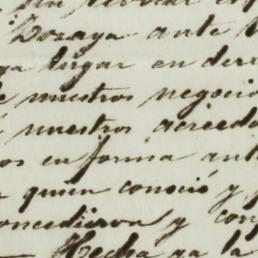 Dozaya ante
lugar en der
nuestros negocio
nuestros acreedo
os en forma ant
quien conoció y
oncedieron y con
Hecha ya la